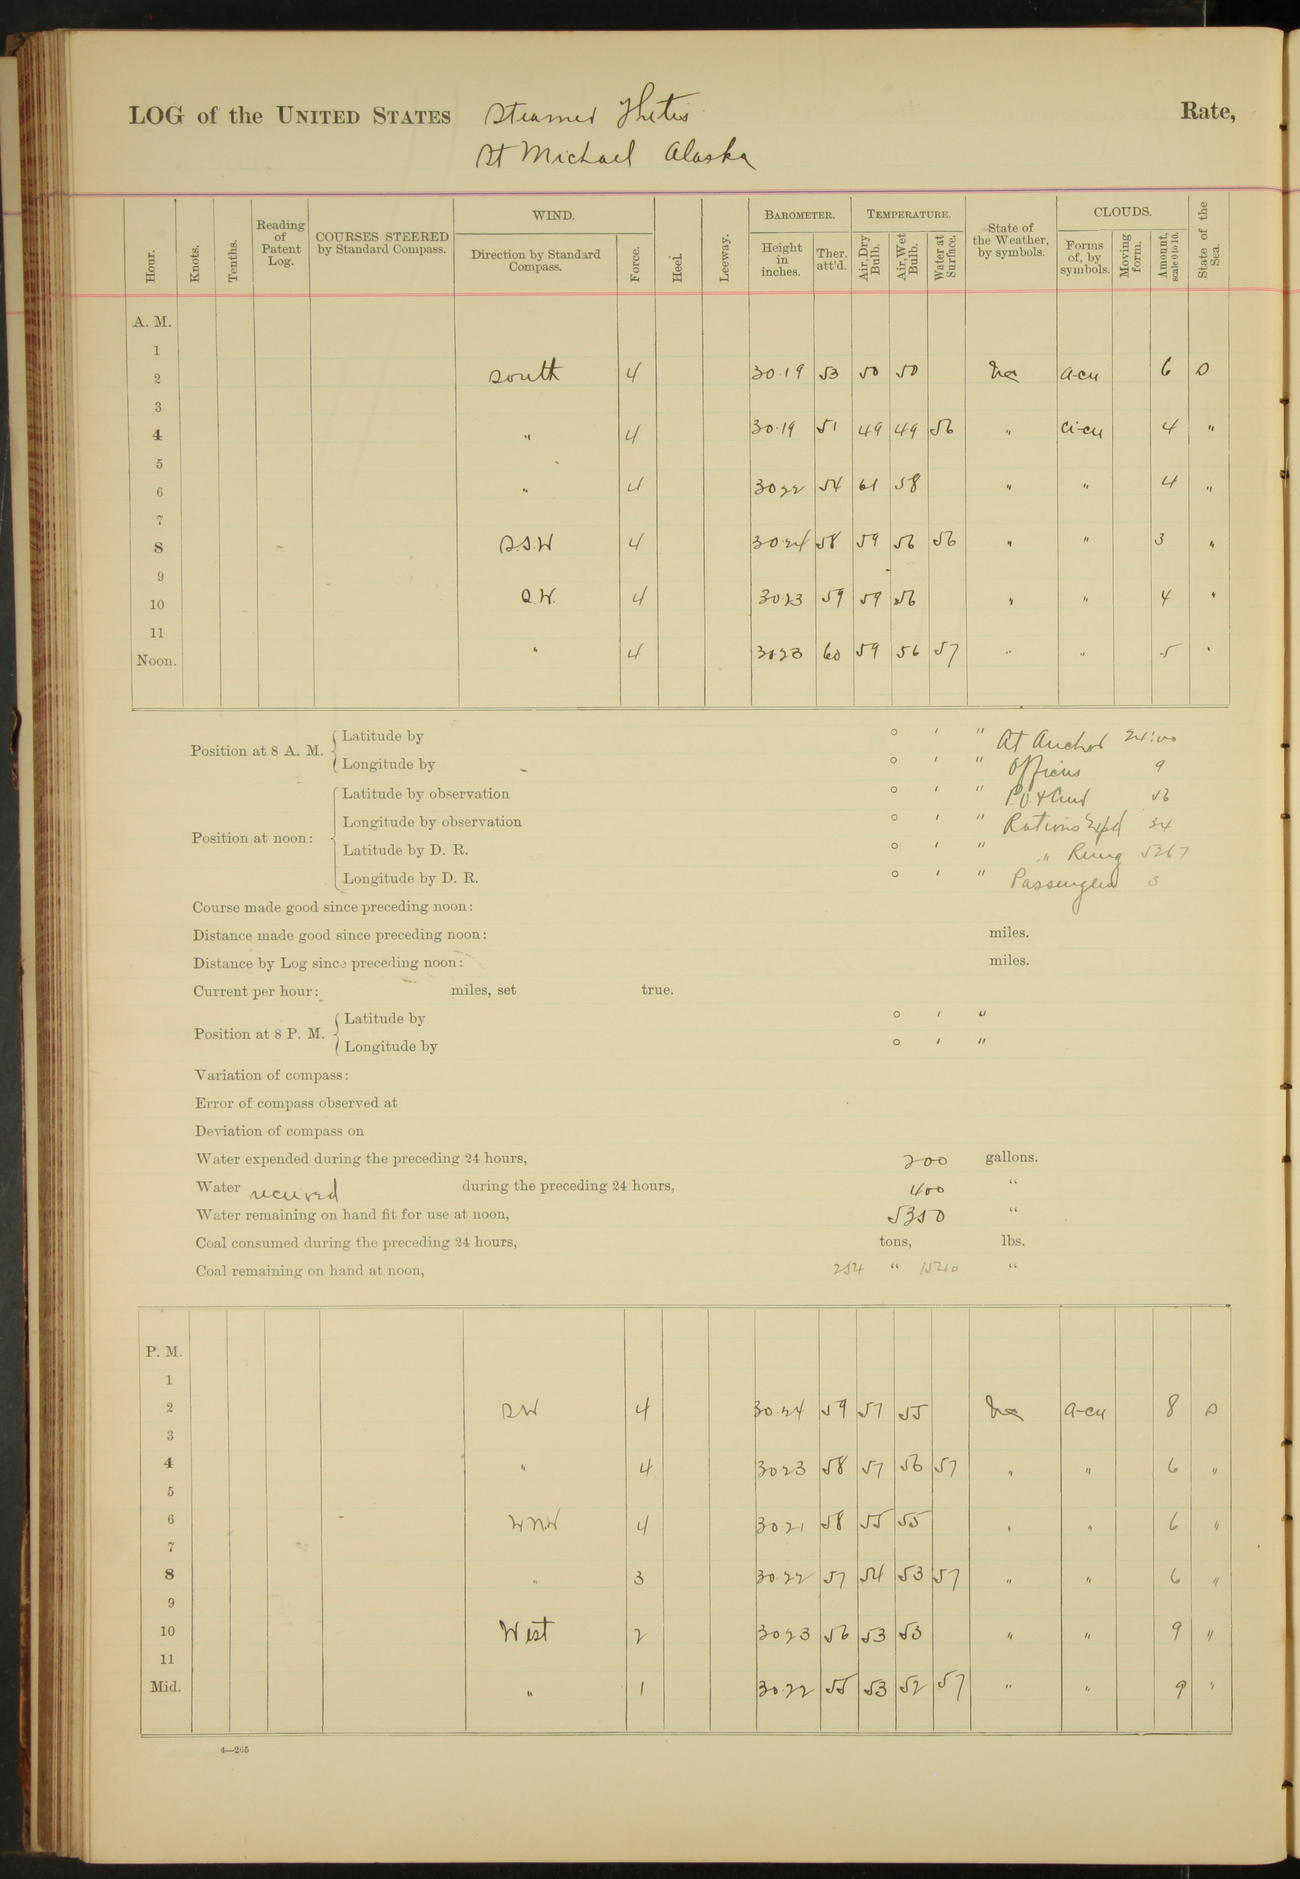 LOG of the UNITED STATES Steamer Thetis Rate,
St Michael Alaska
Hour. Knots. Tenths. Reading of Patent Log. COURSES STEERED by Standard Compass. WIND. Direction by Standard Compass. Force. Heel. Leeway. BAROMETER. Height in inches. Ther. att'd. TEMPERATURE. Air, Dry Bulb. Air, Wet Bulb. Water at Surface. State of the Weather, by symbols. CLOUDS. Forms of, by symbols. Moving form. Amount, scale 0 to 10. State of the Sea.
A. M.
1
2 South 4 30.19 53 50 50 bc a-cu 6 S
3
4 " 4 30.19 51 49 49 56 " ci-cu 4 "
5
6 " 4 3022 54 61 58 " " 4 "
7
8 S.S.W 4 30.24 58 59 56 56 " " 3 "
9
10 S.W. 4 30.23 59 59 56 " " 4 "
11
Noon. " 4 30.23 60 59 56 57 " " 5 "
Position at 8 A. M. Latitude by ° ′ ″ At Anchor 24:00
Longitude by ° ′ ″ Officers 9
Position at noon: Latitude by observation ° ′ ″ P.O & Crew 56
Longitude by observation ° ′ ″ Rations Expd 34
Latitude by D. R. ° ′ ″ " Remg 5267
Longitude by D. R. ° ′ ″ Passengers 3
Course made good since preceding noon:
Distance made good since preceding noon: miles.
Distance by Log since preceding noon: miles.
Current per hour: miles, set true.
Position at 8 P. M. Latitude by ° ′ ″
Longitude by ° ′ ″
Variation of compass:
Error of compass observed at
Deviation of compass on
Water expended during the preceding 24 hours, 200 gallons.
Water received during the preceding 24 hours, 400 "
Water remaining on hand fit for use at noon, 5350 "
Coal consumed during the preceding 24 hours, tons, lbs.
Coal remaining on hand at noon, 254 " 1520 "
P. M.
1
2 SW 4 30.24 59 57 55 bc a-cu 8 S
3
4 " 4 3023 58 57 56 57 " " 6 "
5
6 W.N.W 4 3021 58 55 55 " " 6 "
7
8 " 3 30.22 57 54 53 57 " " 6 "
9
10 West 2 3023 56 53 53 " " 9 "
11
Mid. " 1 30.22 55 53 52 57 " " 9 "
4—265